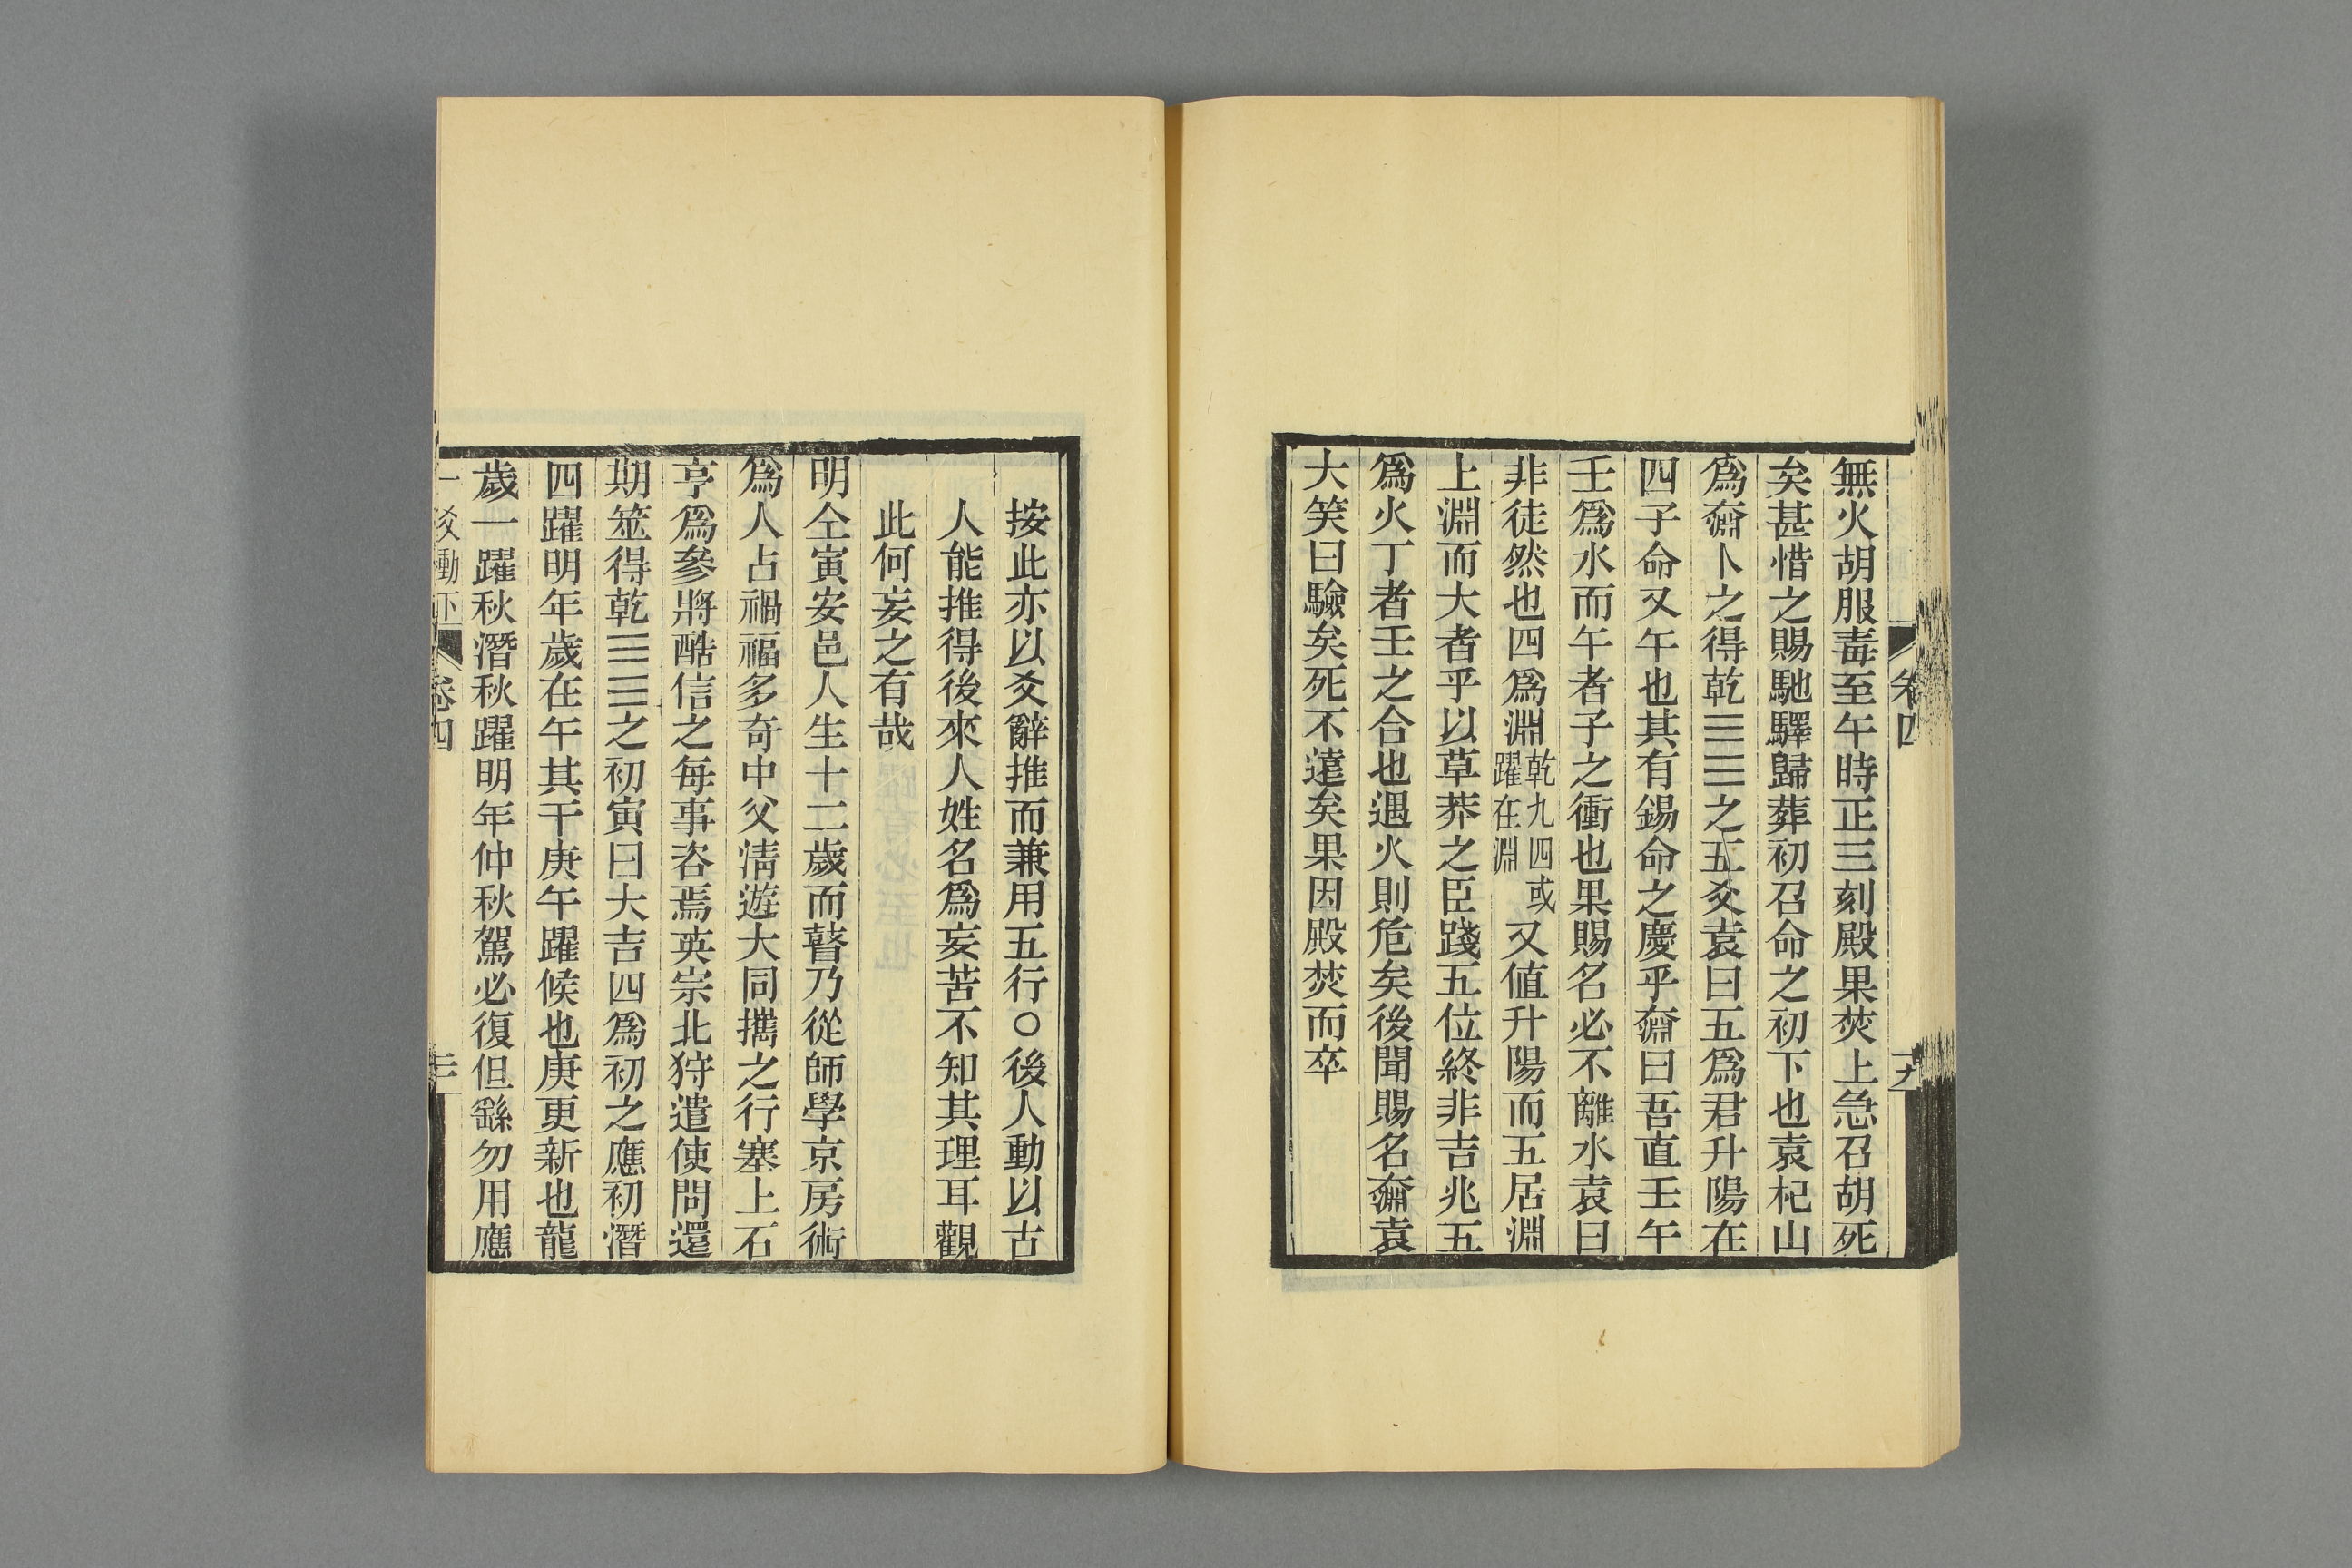 無火胡服毒至午時正三刻殿果焚上急召胡死
矣甚惜之賜馳驛歸葬初召命之初下也袁杞山
爲奫卜之得乾☰☰之五爻袁曰五爲君升陽在
四子命又午也其有錫命之慶乎奫曰吾直壬午
壬爲水而午者子之衝也果賜名必不離水袁曰
非徒然也四爲淵乾九四或躍在淵又値升陽而五居淵
上淵而大者乎以草莽之臣踐五位終非吉兆五
爲火丁者壬之合也遇火則危矣後聞賜名奫袁
大笑曰驗矣死不遠矣果因殿焚而卒
按此亦以爻辭推而兼用五行○後人動以古
人能推得後來人姓名爲妄苦不知其理耳觀
此何妄之有哉
明仝寅安邑人生十二歲而瞽乃從師學京房術
爲人占禍福多奇中父淸遊大同攜之行塞上石
亨爲參將酷信之每事咨焉英宗北狩遣使問還
期筮得乾☰☰之初寅曰大吉四爲初之應初潛
四躍明年歲在午其干庚午躍候也庚更新也龍
歲一躍秋潛秋躍明年仲秋駕必復但繇勿用應
卷四